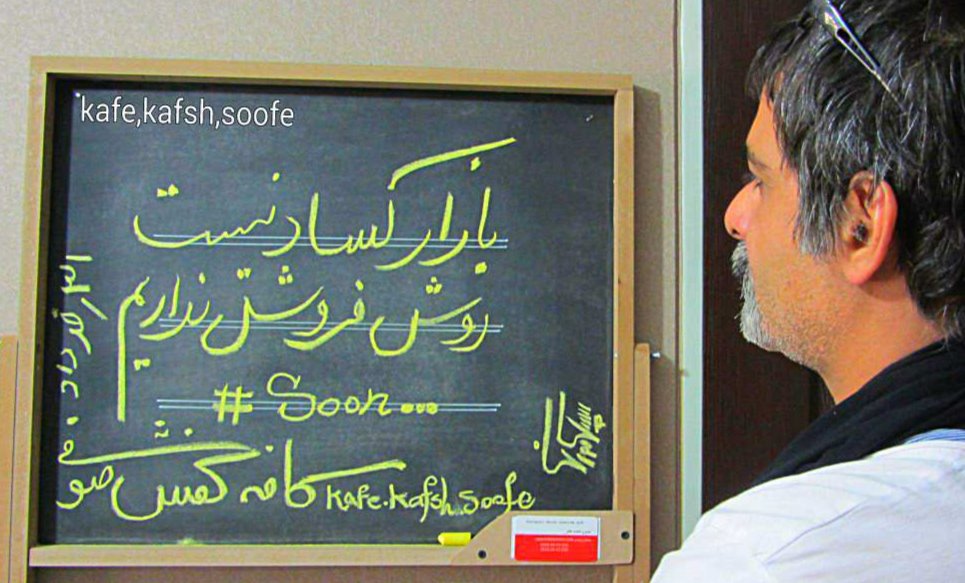 kafe,kafsh,soofe
بازار کساد نیست
روش فروش نداریم
# Soon...
کافه کفش صوفی
Kafe.Kafsh.Soofe